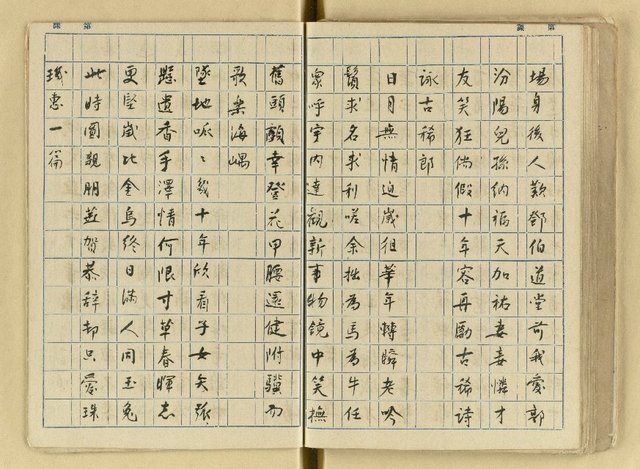 第　課
場身後人歎鄧伯道堂前我愛郭
汾陽兒孫納福天加祐妻妾憐才
友笑狂倘假十年容再勵古稀詩
詠古稀郎
日月無情迫歲徂華年轉瞬老吟
鬚求名求利嗟余拙為馬為牛任
眾呼宇內達觀新事物鏡中笑撫
舊頭顱幸登花甲腰還健附驥而
歌樂海嵎
墜地呱〻幾十年欣看子女矢孤
懸遺香手澤情何限寸草春暉志
更堅歲比金烏終日滿人同玉兔
此時圓親朋並賀恭辭却只愛珠
璣惠一篇
第　課